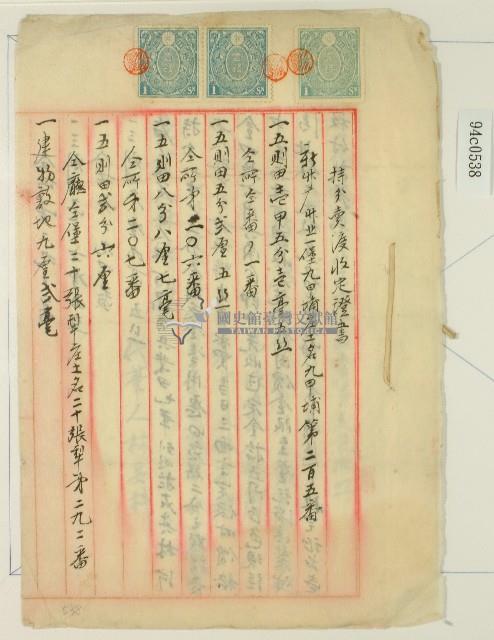 持分賣渡收定證書
新竹廳竹北一堡九甲埔庄土名九甲埔第二百五番
一五則田壹甲五分壹毫五丝
仝所仝番ノ一番
一五則田五分弍厘五丝
仝所第二〇六番
一五則田八分八厘七毫
仝所第二〇七番
一五則田弍分六厘
仝廳仝堡二十張犁庄土名二十張犁第二九二番
一建物敷地九厘弍毫
國史館臺灣文獻館
TAIWAN HISTORICA
94c0538
538